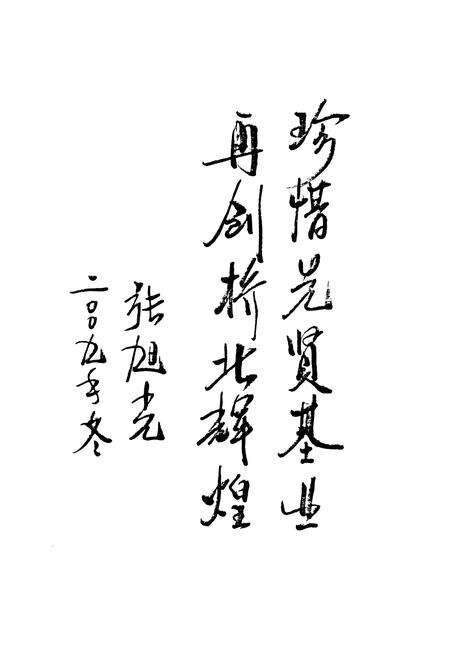 珍惜先贤基业
再创桥北辉煌
张旭光
二〇〇九年冬